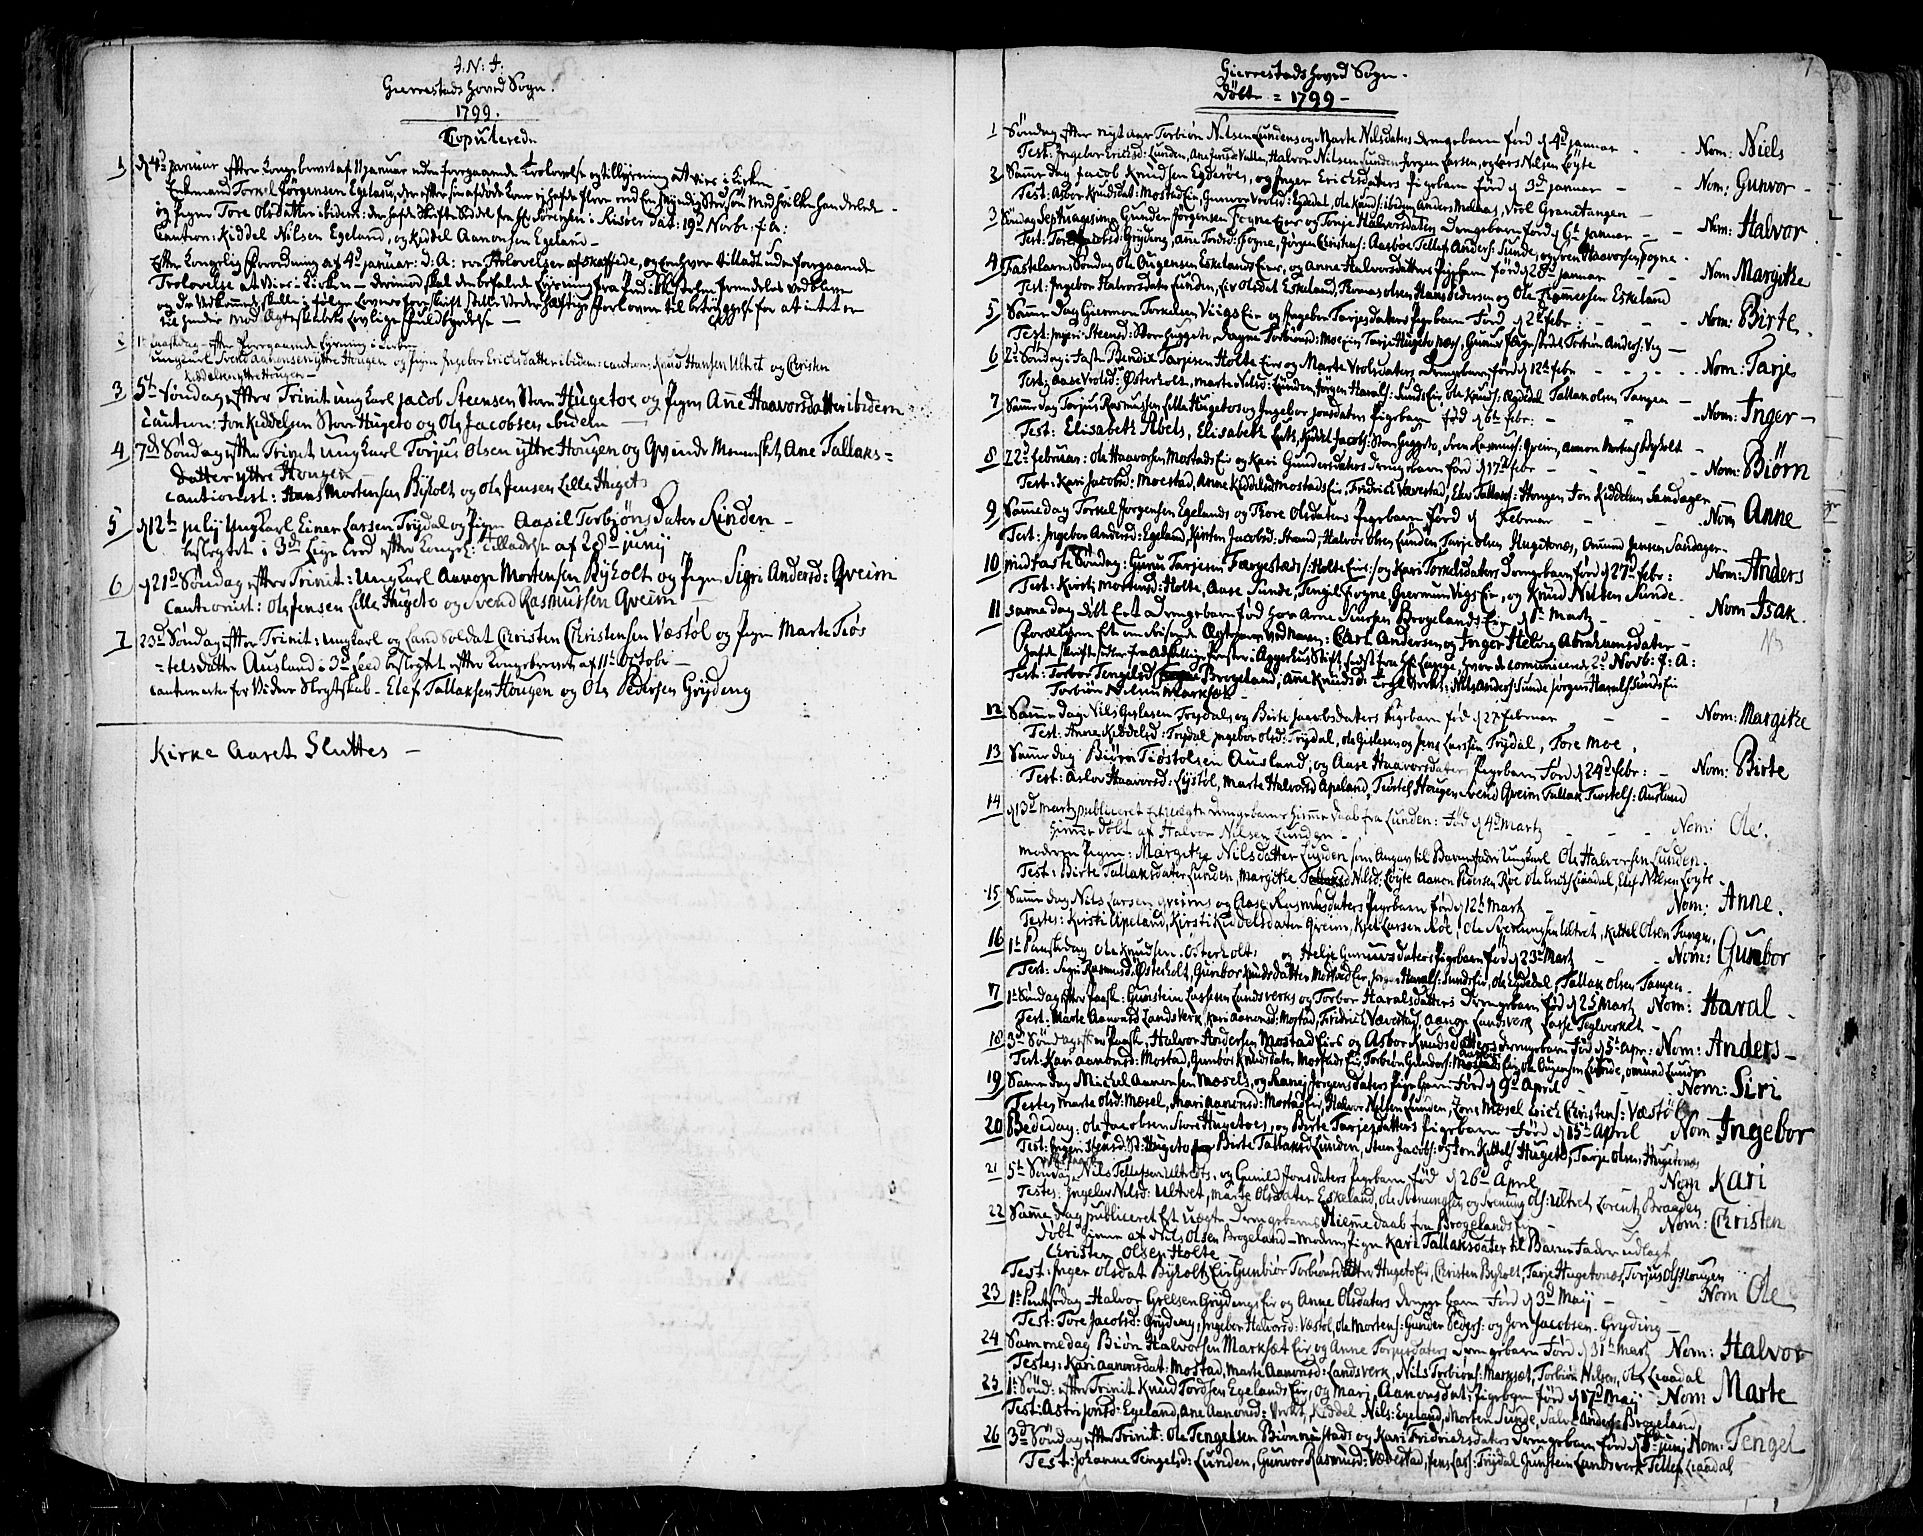 J. N. J.
Gierrestads Hoved Sogn.
1799.
Copulerede
1 d 4d januar efter Kongebrevet af 11 januar uden foregaaende Trolovelse og tillysning at vies i Kirken
Enkemand Torkel Jörgensen Egeland,
og Pigen Tore Olsdatter ibidem: den hafde Skifte Seddel fra Hr Sörensen i Risöer dat: 19d Novbr. f: A:
Caution: Kiddel Nilsen Egeland, og Kiddil Aanonsen Egeland
Efter Kongelig Forordning af 4d januar: d: A: ere Trolovelser afskaffede, og enhver tilladt uden foregaaende
Trolovelse at vies i Kirken
til hinder mod Ægteskabets Lovlige fuldbyrdelse
2 1te Paaskdag efter foregaaende Lysning
ungkarl Svend Aanonsen ytre Hougen og Pigen Ingebor Erichsdatter ibidem: caution: Knud Hansen Ultvet og Christen
Kiddelsen ytre Hougen
3 5te Söndag efter Trinit ungkarl jacob Steensen Store Hugetoe og Pigen Anne Haavorsdatter ibidem
Caution: Jon Kiddelsen Store Hugeto og Ole Jacobsen ibidem
4 7d Söndag efter Trinit Ungkarl Torjus Olsen ytre Hougen og Qvinde Mennesket Ane Tallaks=
datter ytre Hougen
Cautionist: Hans Mortensen Byholt og Ole Jensen Lille Hugeto
5 d 12te julij Ungkarl Einer Larsen Trydal og Pigen Aasil Torbjöns Dater Linden
beslegtet i 3d Lige Leed efter Kongel: Tilladelse af 28d junij
6 d 21d Söndag efter Trinit: Ungkarl Aanon Mortensen Byholt og Pigen Sigri Andersd: Qveim
Cautionist: Ole Jensen Lille Hugeto og Svend Rasmussen Qveim
7 23d Söndag efter Trinit: ungkarl og Land Soldat Christen Christensen Væstöl og Pigen Marte Tiös
=telsdatter Ausland i 3d Leed beslegtet efter Kongebrevet af 11te Octobr
cautionerte for Vidner Slegtskab Elef Tallaksen Hougen og Ole Pedersen Gryding
Kirke Aaret Sluttes
Gierrestads hoved Sogn.
Dölte = 1799
1 Söndag efter Nyt aar Torbiön Nilsen Lundens og Marte Nilsdaters drengebarn förd d 4d januar Nom: Niels
Test: Ingebor Ericksd: Lunden, Halvor Nilsen Lunden Jörgen Larsen, og Lars Nilsen Löyte
2 Samme dag Jacob Knudsen Egderöes, og Inger Ericksdaters Pigebarn förd d 3d januar Nom: Gunvor
Test: Asbor Knudsdat: Mostad Eier, Gunvor Vrolsd: Egdedal, Ole Knuds: ibidem Anders Melaas, Vrol Granetangen
3 Söndag Septuagesima Gunder Jörgensen Fogne Eier og Torje Halvorsdaters Drengebarn förd d 6te januar Nom: Halvor
Test: Tore Jacobsd: Gryding, Jörgen Christens: Aasboe Tellef Anders: Sunde, og Haavorsen Fogne
4 Fastelavns Söndag Ole Ougensen Eskelands Eier, og Anne Halvorsdatters Pigebarn förd d 28d januar Nom Margithe
Test: Ingebor Halvorsdater Lunden, Liv Olsdat Eskeland, Thomas olsen Hans Pedersen og Ole Thomessen Eskeland
5 Samme Dag Giermon Torkelsen Viigs Eier og Ingebor Tarjesdaters Pigebarn Förd d 2d febr: Nom: Birte
6 2d Söndag i Faste Bendix Tarjesen Holte Eier og Marte Vrolsdaters Drengebarn förd d 12te febr Nom: Tarje
Test: Aase Vrolsd: Österholt, Marte Nilsd: Lunden, Jörgen Harals: Sunds Eier, Ole Knuds: Egdedal Tallak olsen Tangen
7 Samme dag Tarjus Rasmussen Lille Hugetoes og Ingebor jonsdaters Pigebarn född d 6te febr: Nom: Inger
Test: Elisabeth Abels, Elisabeth Kiddel Jacobs: Store Huggeto, Sven Rasmuss: Qveim, Aanon Mortens Byholt
8 22d februar: Ole Haavorsen Mostads Eier og Kari Gundersdaters drengebarn förd d 17d febr Nom: Biörn
Test: Kari Jacobsd: Moestad, Anne Kiddelsd Mostads Eier, Fridrich Vævestad, Elev Tallacs: Hougen Jon Kiddelsen Sandager
9 Samme dag Torkel Jörgensen Egelands og Thore Olsdaters Pigebarn förd d Februar Nom Anne
Test: Ingebor Andersd: Egeland, Kirsten Jacobsd: Strand, Halvor Olsen Lunden Tarje olsen Hugetonæs, Omund Jensen Sandager
10 Midfaste Söndag: Gunu Tarjesen Færgestads/: Holte Eier:/ og Kari Torkelsdaters Drengebarn förd d 27d febr: Nom: Anders
Test: Kirsti Mortensd: Holte, Aase Sunde, Tengil Fogne Giermun Vigs Eier, og Knud Nilsen Sunde
11 samme dag dölt Et Drengebarn föd hos Arne Siursen Brogelands Eier d 1te Martz Nom Isak
Forældrene Et om reisende Ægtepar ved Navn: Carl Andersen og Inger Helvig Abrahamsdater NB
Test: Torbor Tengelsd Brogeland, Ane Knudsd: Nils Anders: Sunde Jörgen Harals: Sunds Eier
Torbiön Nilsen Marksæt
12 Samme dag Nils Gislesen Trydals, og Birte Jacobsdaters Pigebarn föd d 27 februar Nom: Margithe
Test: Anne Kiddelsd: Trydal Ingebor Olsd: Trydal, Ole Gislesen og Jens Larssen Trydal, Tore Moe.
13 Samme dag Biörn Tiöstolsen Ausland, og Aase Haavorsdaters Pigebarn Förd d 24d febr: Nom: Birte
Test: Aslov Haavorsd: Lystöl, Marte Halvorsd Apeland, Tiöstel Hougen Svend Qveim Tallak Tiostels: Ausland
14 d 13d Martz publiceret Et uægte drengebarns hiemme daab fra Lunden: Föd d 4d Martz Nom: Ole.
hiemme döbt af Halvor Nilsen Lunden
Moderen Pigen: Margithe Nilsdatter Lunden som Angav til Barnefader Ungkarl Ole Halvorsen Lunden.
Test: Birte Tallaksdater Lunden, Margithe Nilsd: Löyte Aanon Pedersen Roe Ole Liaadal, Elef Nilsen Löyte
15 Samme dag Nils Larsen Qveims og Aase Rasmusdaters Pigebarn förd d 12te Martz Nom: Anne.
Testes: Kirsti Apeland, Kirsti Kiddelsdater Qveim, Kjel Larsen Roe, Ole Sveinungsen Ultvet, Kittel Olsen Tangen
16 1te Paaskdag Ole Knudsen Österholts og Helje Gunnusdaters Pigebarn föd d 23d Martz Nom: Gunbor
Test: Sigri Rasmusd: Österholt, Gunbor Knudsdatter Mostad Eier, Jörgen Harals: Sunds Eier, Ole Egdedal, Tallak Olsen Tangen.
17 1te Söndag efter Paask: Gunstein Lassesen Landsverks og Torbor Haralsdatters Drengebarn föd d 25 Martz Nom: Haral
Test: Marte Aanonsd Landsverk, Kari Aanonsd: Mostad, Fridrich Vævestad, Aanon Landsverk Lasse Teglverket
18 3d Söndag efter Paask. Halvor Mostad Eiers og Asbor Knudsdatters drengebarn föd d 5te Apr: Nom: Anders
Test: Kari Aanonsd: Mostad, Gunbor Knudsdater Mostads Eier, Torbiön Gunders: Eier Ole Ougensen Lunde, Omund Lunden
19 Samme dag Michel Aanonsen Mæsels, og Ranej Jörgensdaters Pigebarn Förd d 9d April Nom: Siri
Testes Marte Olsd: Mæsel, Mari Aanonsd: Mostad Eier, Halvor Nilsen Lunden, Tore Mæsel Erich Christens: Væstöl
20 Bededag: Ole Jacobsen Store Hugetoes, og Birte Tarjesdatters Pigebarn Förd d 15te April Nom Ingebor
Test: Ingen Stensd: St: Hugeto Birte Tallaksd Lunden, Steen Jacobs: og Jon Kittels Hugeto, Tarje Olsen Hugetonæs
21 5te Söndag Nils Tellefsen Ultvedts, og Gunild Jonsdaters Pigebarn föd d 26d April Nom Kari
Testes: Ingeleiv Nilsd: Ultvet, Marte Olsdater Eskeland, Ole Sveinungsen og Svenung Ols: Ultvet Lorentz Braaden
22 Samme dag publiceret Et uægte Drengebarns Hiemme daab fra Brogelands Eier Nom: Christen
Döbt hiemme af Nils Olsen Brogeland Moderen Pigen Kari Tallaksdater til Barne Fader udlagt
Christen Olsen Holte
Test: Inger Olsdat Byholt Eier Gunbiör Torbionsdatter Hugeto Eier, Christen Byholt, Tarje Hugetonæs, Torjus Ols Hougen
23 1te Pintzdag Halvor Grelsen Grydings Eier og Anne Olsdaters drengebarn Förd d 3d Maij Nom Ole
Test: Tore Jacobsd: Gryding, Ingebor Halvorsd: Væstöl, Ole Mortens: Gunder Peders: og Jon Jacobsen Gryding
24 Sammedag Biörn Halvorsen Marksæt Eier og Anne Torjusdaters Drengebarn Förd d 31te Martz Nom: Halvor
Testes: Kari Aanonsdat: Mostad, Marte Aanonsd: Landsverk, Nils Torbiöns: Marksæt, Torbiön Nilsen, Ole Liaadal
25 1te Sönd: efter Trinit Knud Tordsen Egelands Eier, og Mari Aanonsdat: Pigebarn förd d 17d Maij Nom Marte
Test: Astri jonsd: Egeland, Ane Aanonsd: Vrolt, Kiddel Nils: Egeland, Morten Sunde, Salve Anders: Brogeland
26 3d Söndag efter Trinit: Ole Tengelsen Biönnestads og Kari Fridrichsdaters Drengebarn förd d 8te junj Nom: Tengel
Test: Johanne Tengelsd: Lunden, Gunvor Rasmusd: Vævestad, Jens Lass: Trydal Gunstein Landsverk Tellef Liaadal